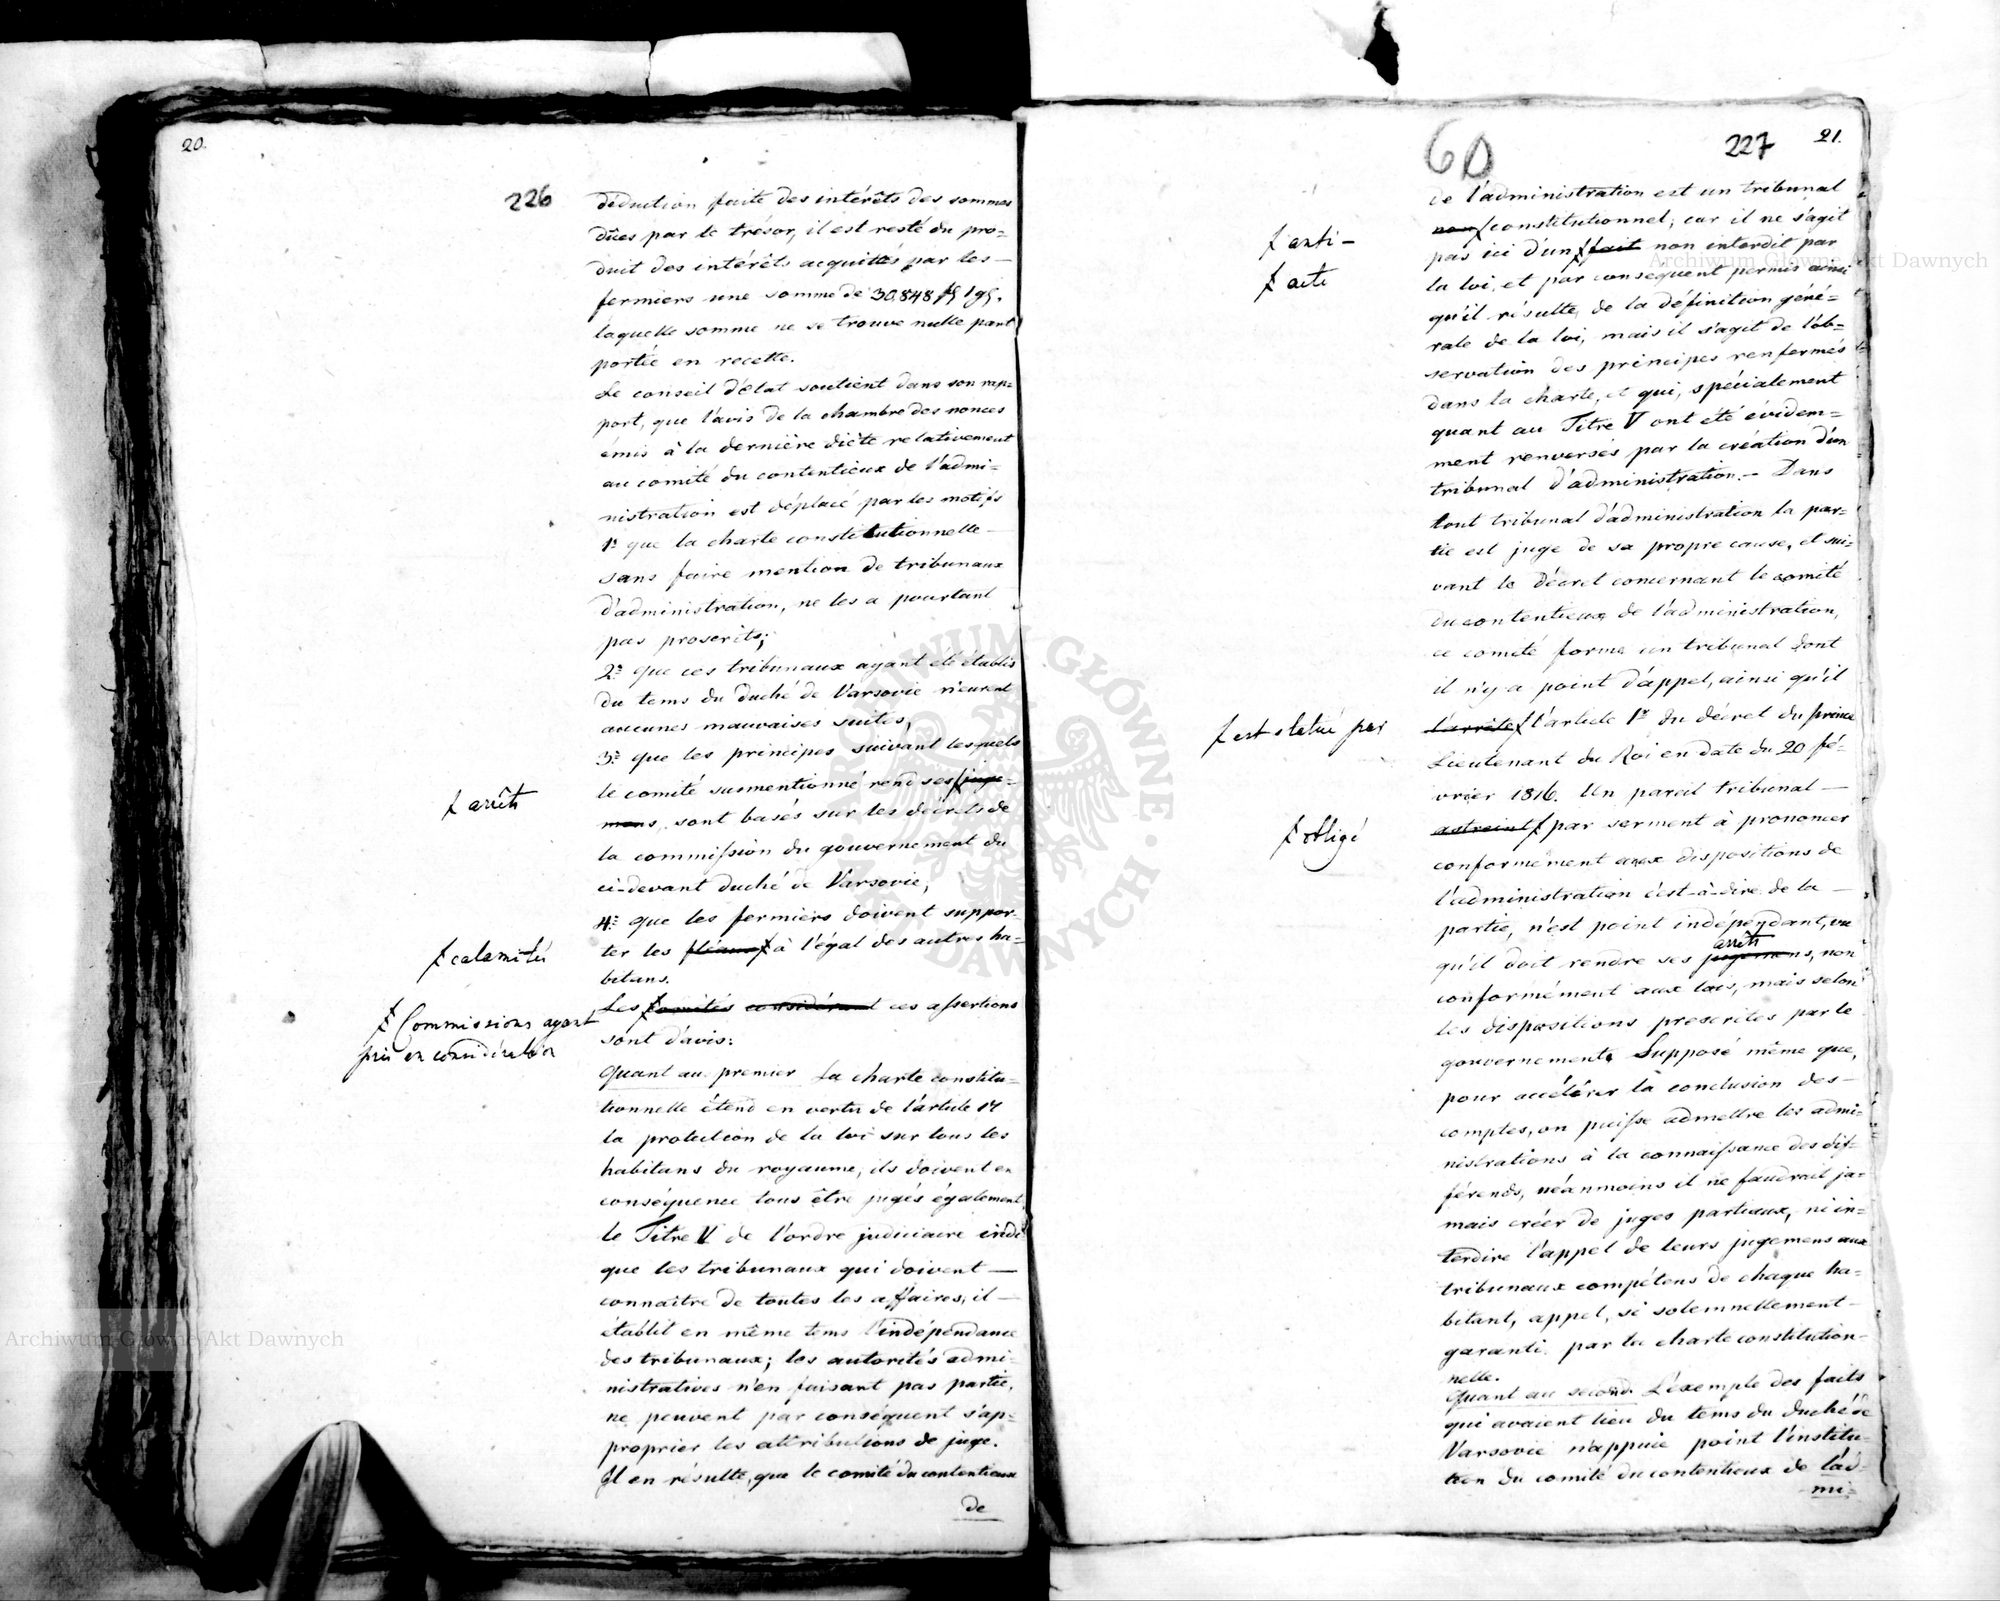 20.
226
déduction faite des intérêts des sommes
dûes par le trésor, il est resté du pro=
duit des intérêts acquittés par les —
fermiers une somme de 30,848
laquelle somme ne se trouve nulle part
portée en recette.
Le conseil d'état soutient dans son rap=
port, que l'avis de la chambre des nonces
émis à la dernière diète relativement
au comité du contentieux de l'admi=
nistration est déplacé par les motifs
1º que la charte constitutionnelle —
sans faire mention de tribunaux
d'administration, ne les a pourtant
pas proscrits;
2º que ces tribunaux ayant été établis
du tems du duché de Varsovie n'eurent
aucunes mauvaises suites,
3º que les principes suivant lesquels
le comité susmentionné rend ses juge=
ƒ arrêts
mens, sont basés sur les décrets de
la commission du gouvernement du
ci-devant duché de Varsovie,
4º que les fermiers doivent suppor=
ter les fléaux ƒ à l'égal des autres ha=
ƒ calamités
bitans.
Les ƒ comités considérant ces assertions
ƒ Commissions ayant
pris en considération
sont d'avis:
Quant au premier La charte constitu=
tionnelle étend en vertu de l'article 17
la protection de la loi sur tous les
habitans du royaume, ils doivent en
conséquence tous être jugés également
le Titre V de l'ordre judiciaire indi
que les tribunaux qui doivent —
connaître de toutes les affaires, il —
établit en même tems l'indépendance
des tribunaux; les autorités admi=
nistratives n'en faisant pas partie,
ne peuvent par conséquent s'ap=
proprier les attributions de juge.
Il en résulte, que le comité du contentieux
de
60
227
21.
de l'administration est un tribunal
non ƒ constitutionnel; car il ne s'agit
ƒ anti-
pas ici d'un ƒ fait non interdit par
ƒ acte
la loi, et par conséquent permis ainsi
qu'il résulte de la définition géné=
rale de la loi, mais il s'agit de l'ob=
servation des principes renfermés
dans la charte, et qui, spécialement
quant au Titre V ont été évidem=
ment renversés par la création d'un
tribunal d'administration. — Dans
tout tribunal d'administration la par=
tie est juge de sa propre cause, et sui=
vant le décret concernant le comité
du contentieux de l'administration,
ce comité forme un tribunal dont
il n'y a point d'appel, ainsi qu'il
l'arrête ƒ l'article 1r du décret du prince
ƒ est statué par
Lieutenant du Roi en date du 20 fé=
vrier 1816. Un pareil tribunal —
astreint ƒ par serment à prononcer
ƒ obligé
conformément aux dispositions de
l'administration c'est-à-dire de la —
partie, n'est point indépendant, vu
arrêts
qu'il doit rendre ses jugemens, non
conformément aux lois, mais selon
les dispositions prescrites par le
gouvernement. Supposé même que,
pour accélérer la conclusion des —
comptes, on puisse admettre les admi=
nistrations à la connaissance des dif=
férends, néanmoins il ne faudrait ja=
mais créer de juges partiaux, ni in=
terdire l'appel de leurs jugemens aux
tribunaux compétens de chaque ha=
bitant, appel, si solemnellement —
garanti par la charte constitution=
nelle.
Quant au second L'exemple des faits
qui avaient lieu du tems du duché de
Varsovie n'appuie point l'institu=
tion du comité du contentieux de l'ad=
mi=
Archiwum Główne Akt Dawnych
Archiwum Główne Akt Dawnych
ARCHIWUM GŁÓWNE AKT DAWNYCH